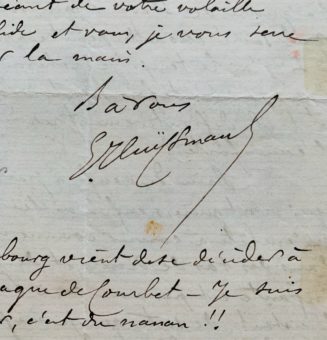 geant de votre volaille
lide et vous, je vous serre
la main.
Bà vous
G Huÿsmans
bourg vient de se décider à
aque de Courbet – Je suis
r, c'est du nanan !!